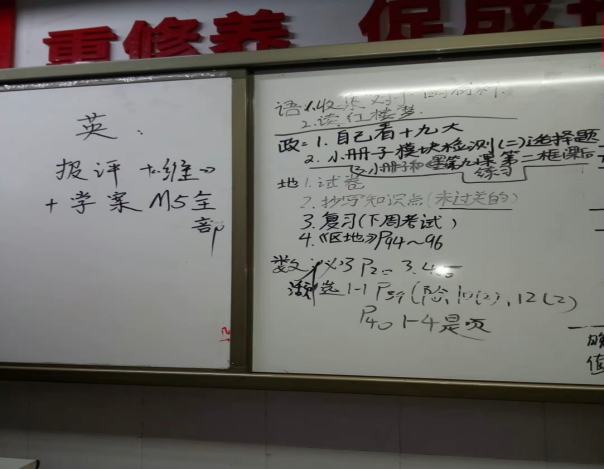 重修养 促成
英：
报评
+学案 M5全
部
语 1.收集
2.读红楼梦.
政=1.自己看十九大
2.小册子模块检测(二)选择题
小册子和 第九课第二框课后
练习
地 1.试卷
2.抄写知识点(未过关的)
3.复习(下周考试)
4.《区地》P94~96
数: 必3 P2
选1-1 P59 (除 10(2), 12(2)
P40 1-4
值